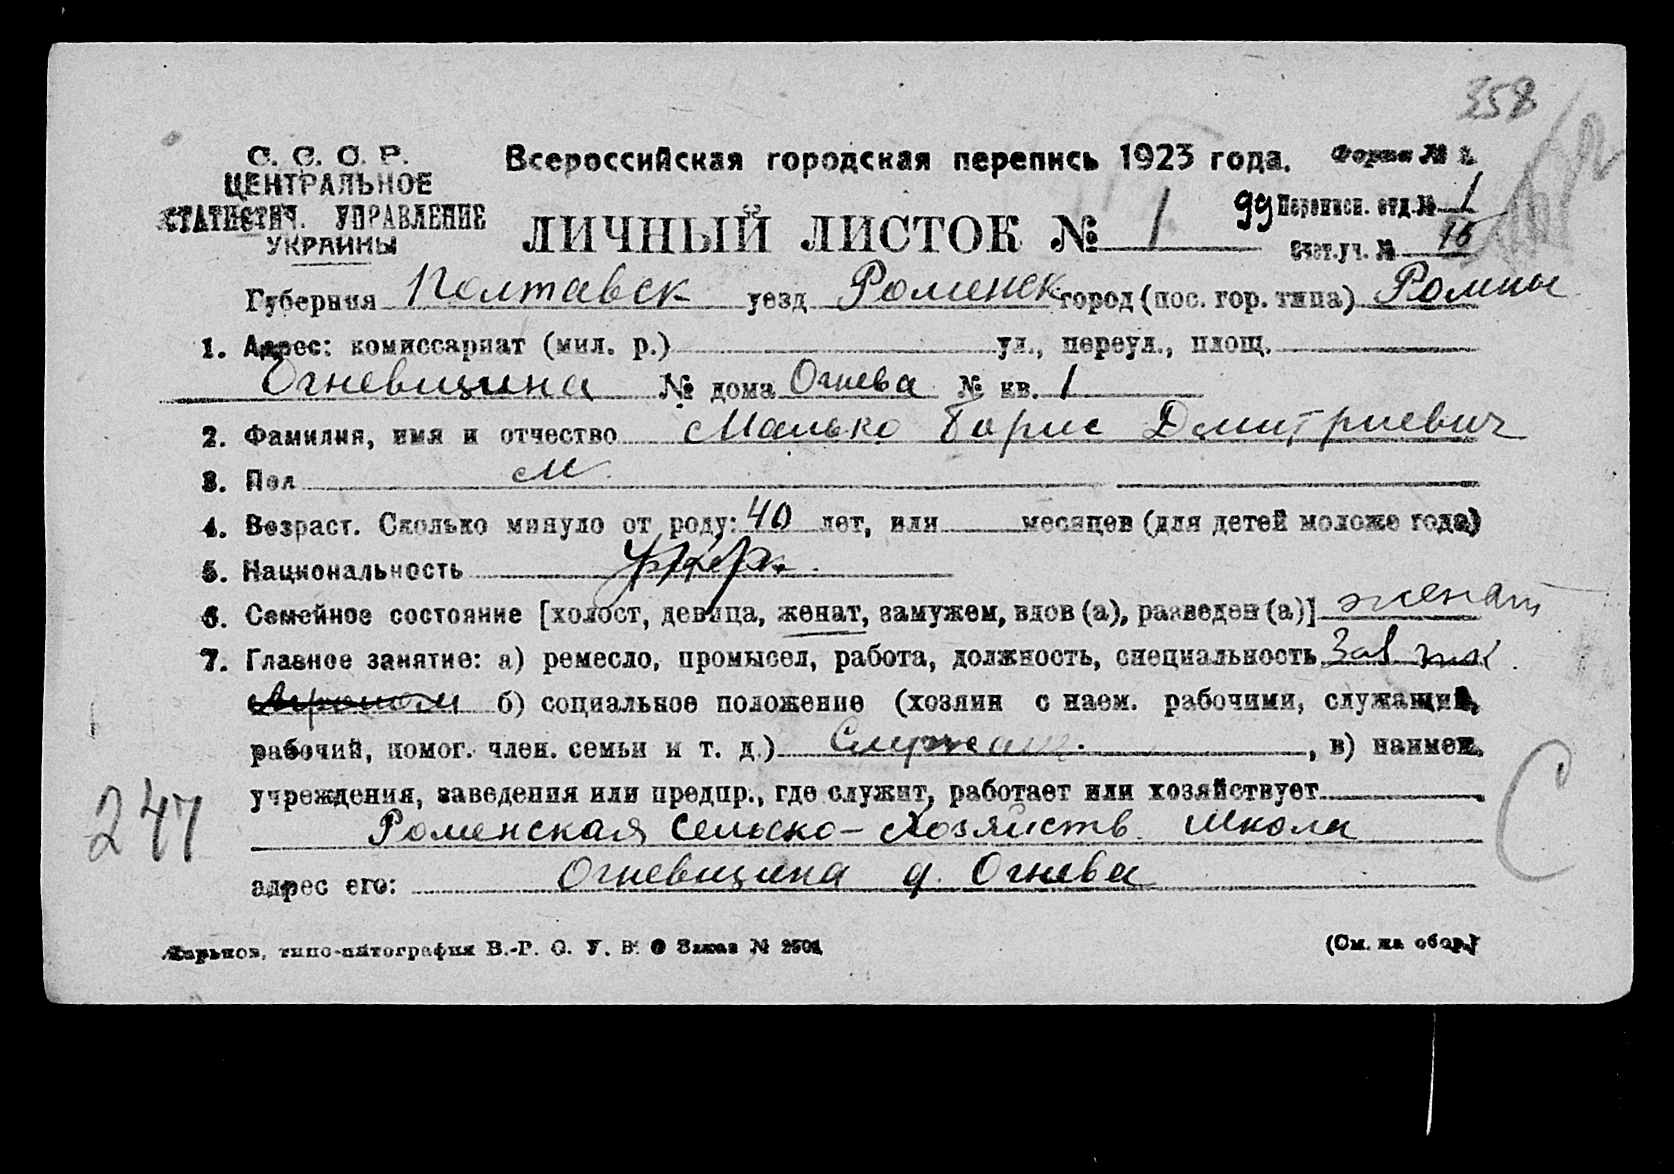 358
С. С. С. Р.
ЦЕНТРАЛЬНОЕ
СТАТИСТИЧ. УПРАВЛЕНИЕ
УКРАИНЫ
Всероссийская городская перепись 1923 года. Форма №
ЛИЧНЫЙ ЛИСТОК № 1
99 Переписн. отд. № 1
Счет. уч. № 16
Губерния Полтавск уезд Роменск город (пос. гор. типа) Ромны
1. Адрес: комиссариат (мил. р.) ул., переул., площ.
Огневщина № дома Огнева № кв. 1
2. Фамилия, имя и отчество Малько Борис Дмитриевич
3. Пол м
4. Возраст. Сколько минуло от роду: 40 лет, или месяцев (для детей моложе года)
5. Национальность
6. Семейное состояние [холост, девица, женат, замужем, вдов (а), разведен (а)] женат
7. Главное занятие: а) ремесло, промысел, работа, должность, специальность Зав
Агроном б) социальное положение (хозяин с наем. рабочими, служащий,
рабочий, помог. член. семьи и т. д.) Служащ. , в) наимен.
учреждения, заведения или предпр., где служит, работает или хозяйствует
Роменская Сельско-Хозяйств. Школа
адрес его: Огневщина д. Огнева
247
С
Харьков, типо-литография В.-Р. О. У. В. О Заказ № 2501
(См. на обор.)